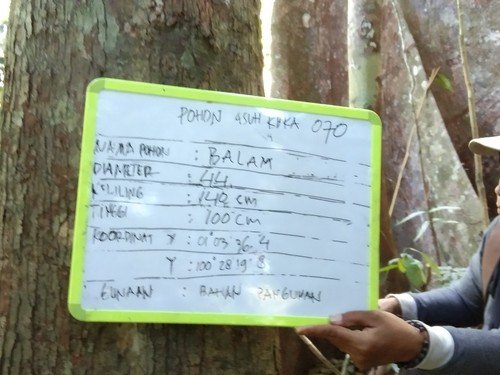 POHON ASUH KKKA 070
NAMA POHON : BALAM
DIAMETER : 44
KELILING : 142 CM
TINGGI : 100 CM
KOORDINAT X : 01°03'36.4
Y : 100°28'19"8
GUNAAN : BAHAN BANGUNAN